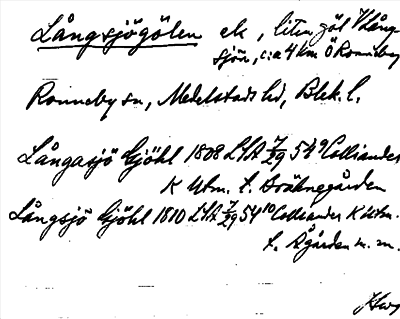 Långsjögölen ek, liten göl V Lång-
sjön, c:a 4 km Ö Ronneby
Ronneby sn, Medelstads hd, Blek. l.
Långasjö Gjöhl 1808 LSA 7/29 54⁹ Colliander
K Utm. t. Brähnegården
Långsjö Gjöhl 1810 LSA 7/29 54¹⁰ Colliander K Utm.
t. Ågården m. m.